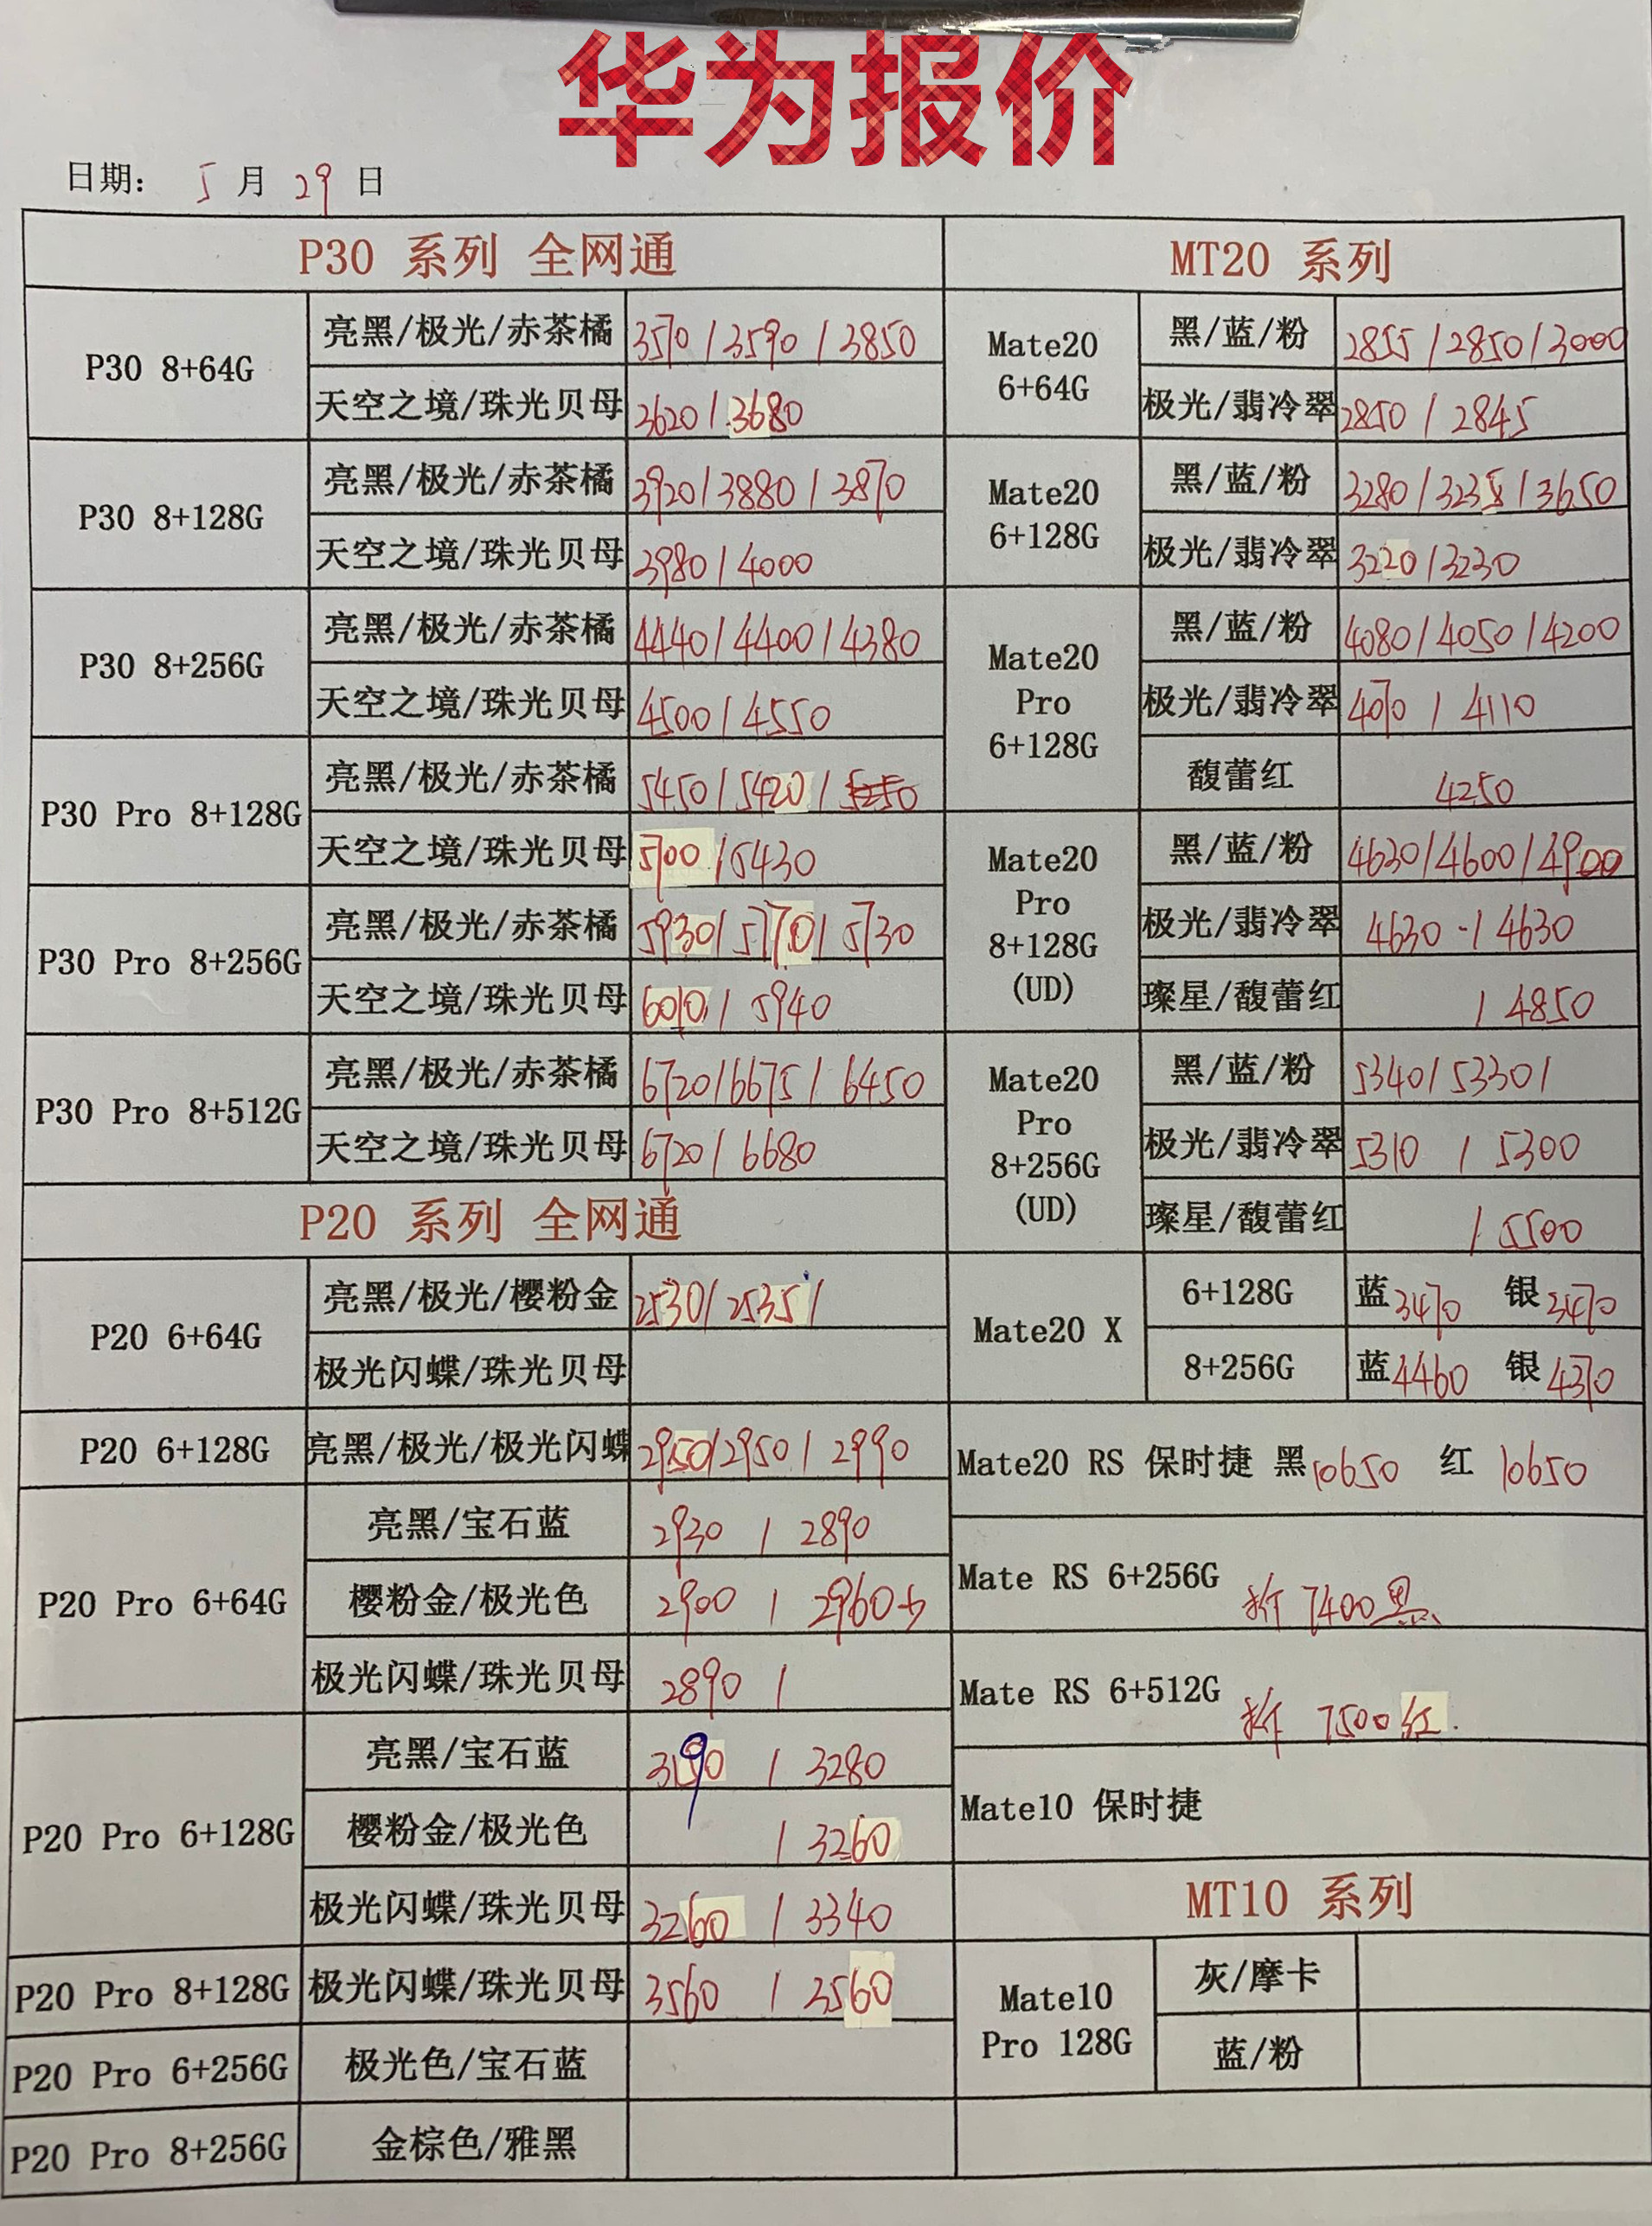 华为报价
日期: 5 月 29 日
P30 系列 全网通
P30 8+64G
亮黑/极光/赤茶橘 3570/3590/3850
天空之境/珠光贝母 3620/3680
P30 8+128G
亮黑/极光/赤茶橘 3920/3880/3870
天空之境/珠光贝母 3980/4000
P30 8+256G
亮黑/极光/赤茶橘 4440/4400/4380
天空之境/珠光贝母 4500/4550
P30 Pro 8+128G
亮黑/极光/赤茶橘 5450/5420/
天空之境/珠光贝母 5700/5430
P30 Pro 8+256G
亮黑/极光/赤茶橘 5930/5770/5730
天空之境/珠光贝母 6010/5940
P30 Pro 8+512G
亮黑/极光/赤茶橘 6720/6675/6450
天空之境/珠光贝母 6720/6680
P20 系列 全网通
P20 6+64G
亮黑/极光/樱粉金 2530/2535/
极光闪蝶/珠光贝母
P20 6+128G
亮黑/极光/极光闪蝶 2950/2950/2990
P20 Pro 6+64G
亮黑/宝石蓝 2930/2890
樱粉金/极光色 2900/2960少
极光闪蝶/珠光贝母 2890/
P20 Pro 6+128G
亮黑/宝石蓝 3190/3280
樱粉金/极光色 /3260
极光闪蝶/珠光贝母 3260/3340
P20 Pro 8+128G
极光闪蝶/珠光贝母 3560/3560
P20 Pro 6+256G
极光色/宝石蓝
P20 Pro 8+256G
金棕色/雅黑
MT20 系列
Mate20
6+64G
黑/蓝/粉 2855/2850/3000
极光/翡冷翠 2850/2845
Mate20
6+128G
黑/蓝/粉 3280/3235/3650
极光/翡冷翠 3220/3230
Mate20
Pro
6+128G
黑/蓝/粉 4080/4050/4200
极光/翡冷翠 4070/4110
馥蕾红 4250
Mate20
Pro
8+128G
(UD)
黑/蓝/粉 4630/4600/4900
极光/翡冷翠 4630/4630
璨星/馥蕾红 /4850
Mate20
Pro
8+256G
(UD)
黑/蓝/粉 5340/5330/
极光/翡冷翠 5310/5300
璨星/馥蕾红 /5500
Mate20 X
6+128G 蓝3470 银3470
8+256G 蓝4460 银4370
Mate20 RS 保时捷 黑10650 红 10650
Mate RS 6+256G 拆 7400黑
Mate RS 6+512G 拆 7500红
Mate10 保时捷
MT10 系列
Mate10
Pro 128G
灰/摩卡
蓝/粉